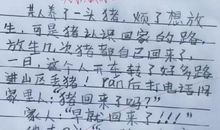 某人养了一头猪，烦了想放
生，可是猪认识回家的路，
放生几次猪都自己回来了，
一日，这个人开车转了好多路
进山区丢猪！ran后打电话问
家里人：“猪回来了吗？”
家人：“早就回来了！！！”